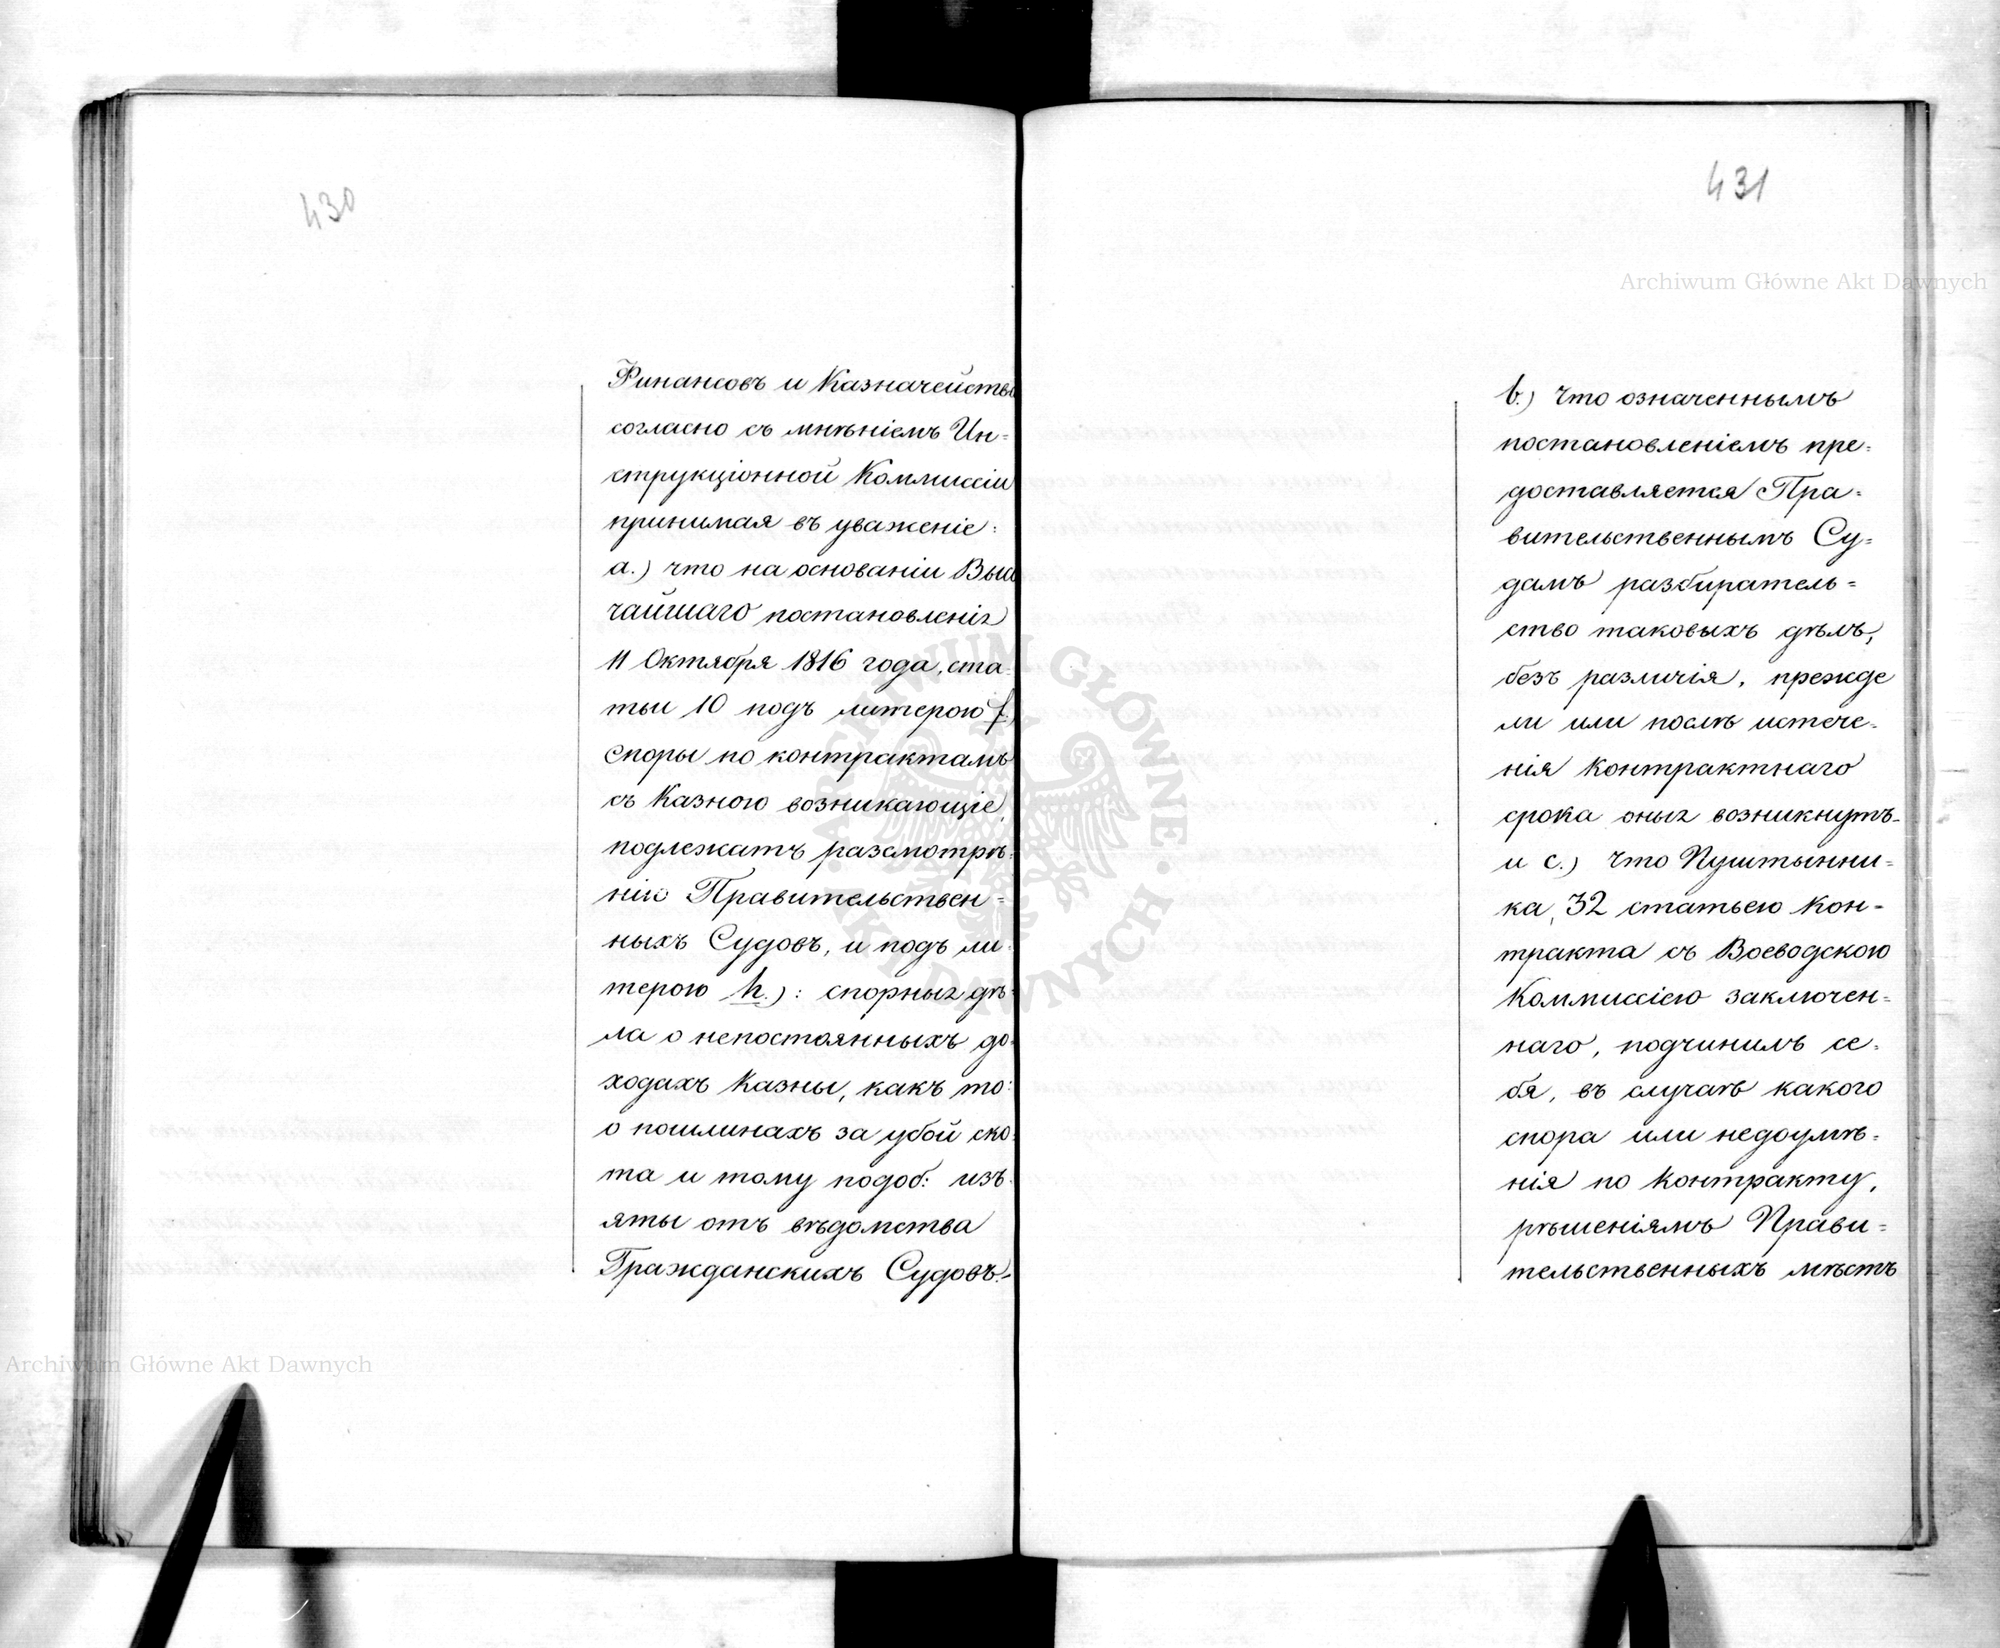 430
Финансовъ и Казначейства
согласно съ мнѣніемъ Ин=
струкціонной Коммиссіи
принимая въ уваженіе:
а.) что на основаніи Высо
чайшаго постановленія
11 Октября 1816 года, ста=
тьи 10 подъ литерою f.)
споры по контрактамъ
съ Казною возникающіе,
подлежатъ разсмотрѣ=
нію Правительствен=
ныхъ Судовъ, и подъ ли=
терою h.): спорныя дѣ=
ла о непостоянныхъ до=
ходахъ Казны, какъ то:
о пошлинахъ за убой ско=
та и тому подоб: изъ=
яты отъ вѣдомства
Гражданскихъ Судовъ.-
431
Archiwum Główne Akt Dawnych
b.) что означеннымъ
постановленіемъ пре=
доставляется Пра=
вительственнымъ Су=
дамъ разбиратель=
ство таковыхъ дѣлъ,
безъ различія, прежде
ли или послѣ истече=
нія контрактнаго
срока оныя возникнутъ-
и с.) что Пуштынни=
ка, 32 статьею кон=
тракта съ Воеводскою
Коммиссіею заключен=
наго, подчинилъ се=
бя, въ случаѣ какого
спора или недоумѣ=
нія по контракту,
рѣшеніямъ Прави=
тельственныхъ мѣстъ
ARCHIWUM GŁÓWNE · AKT DAWNYCH ·
Archiwum Główne Akt Dawnych